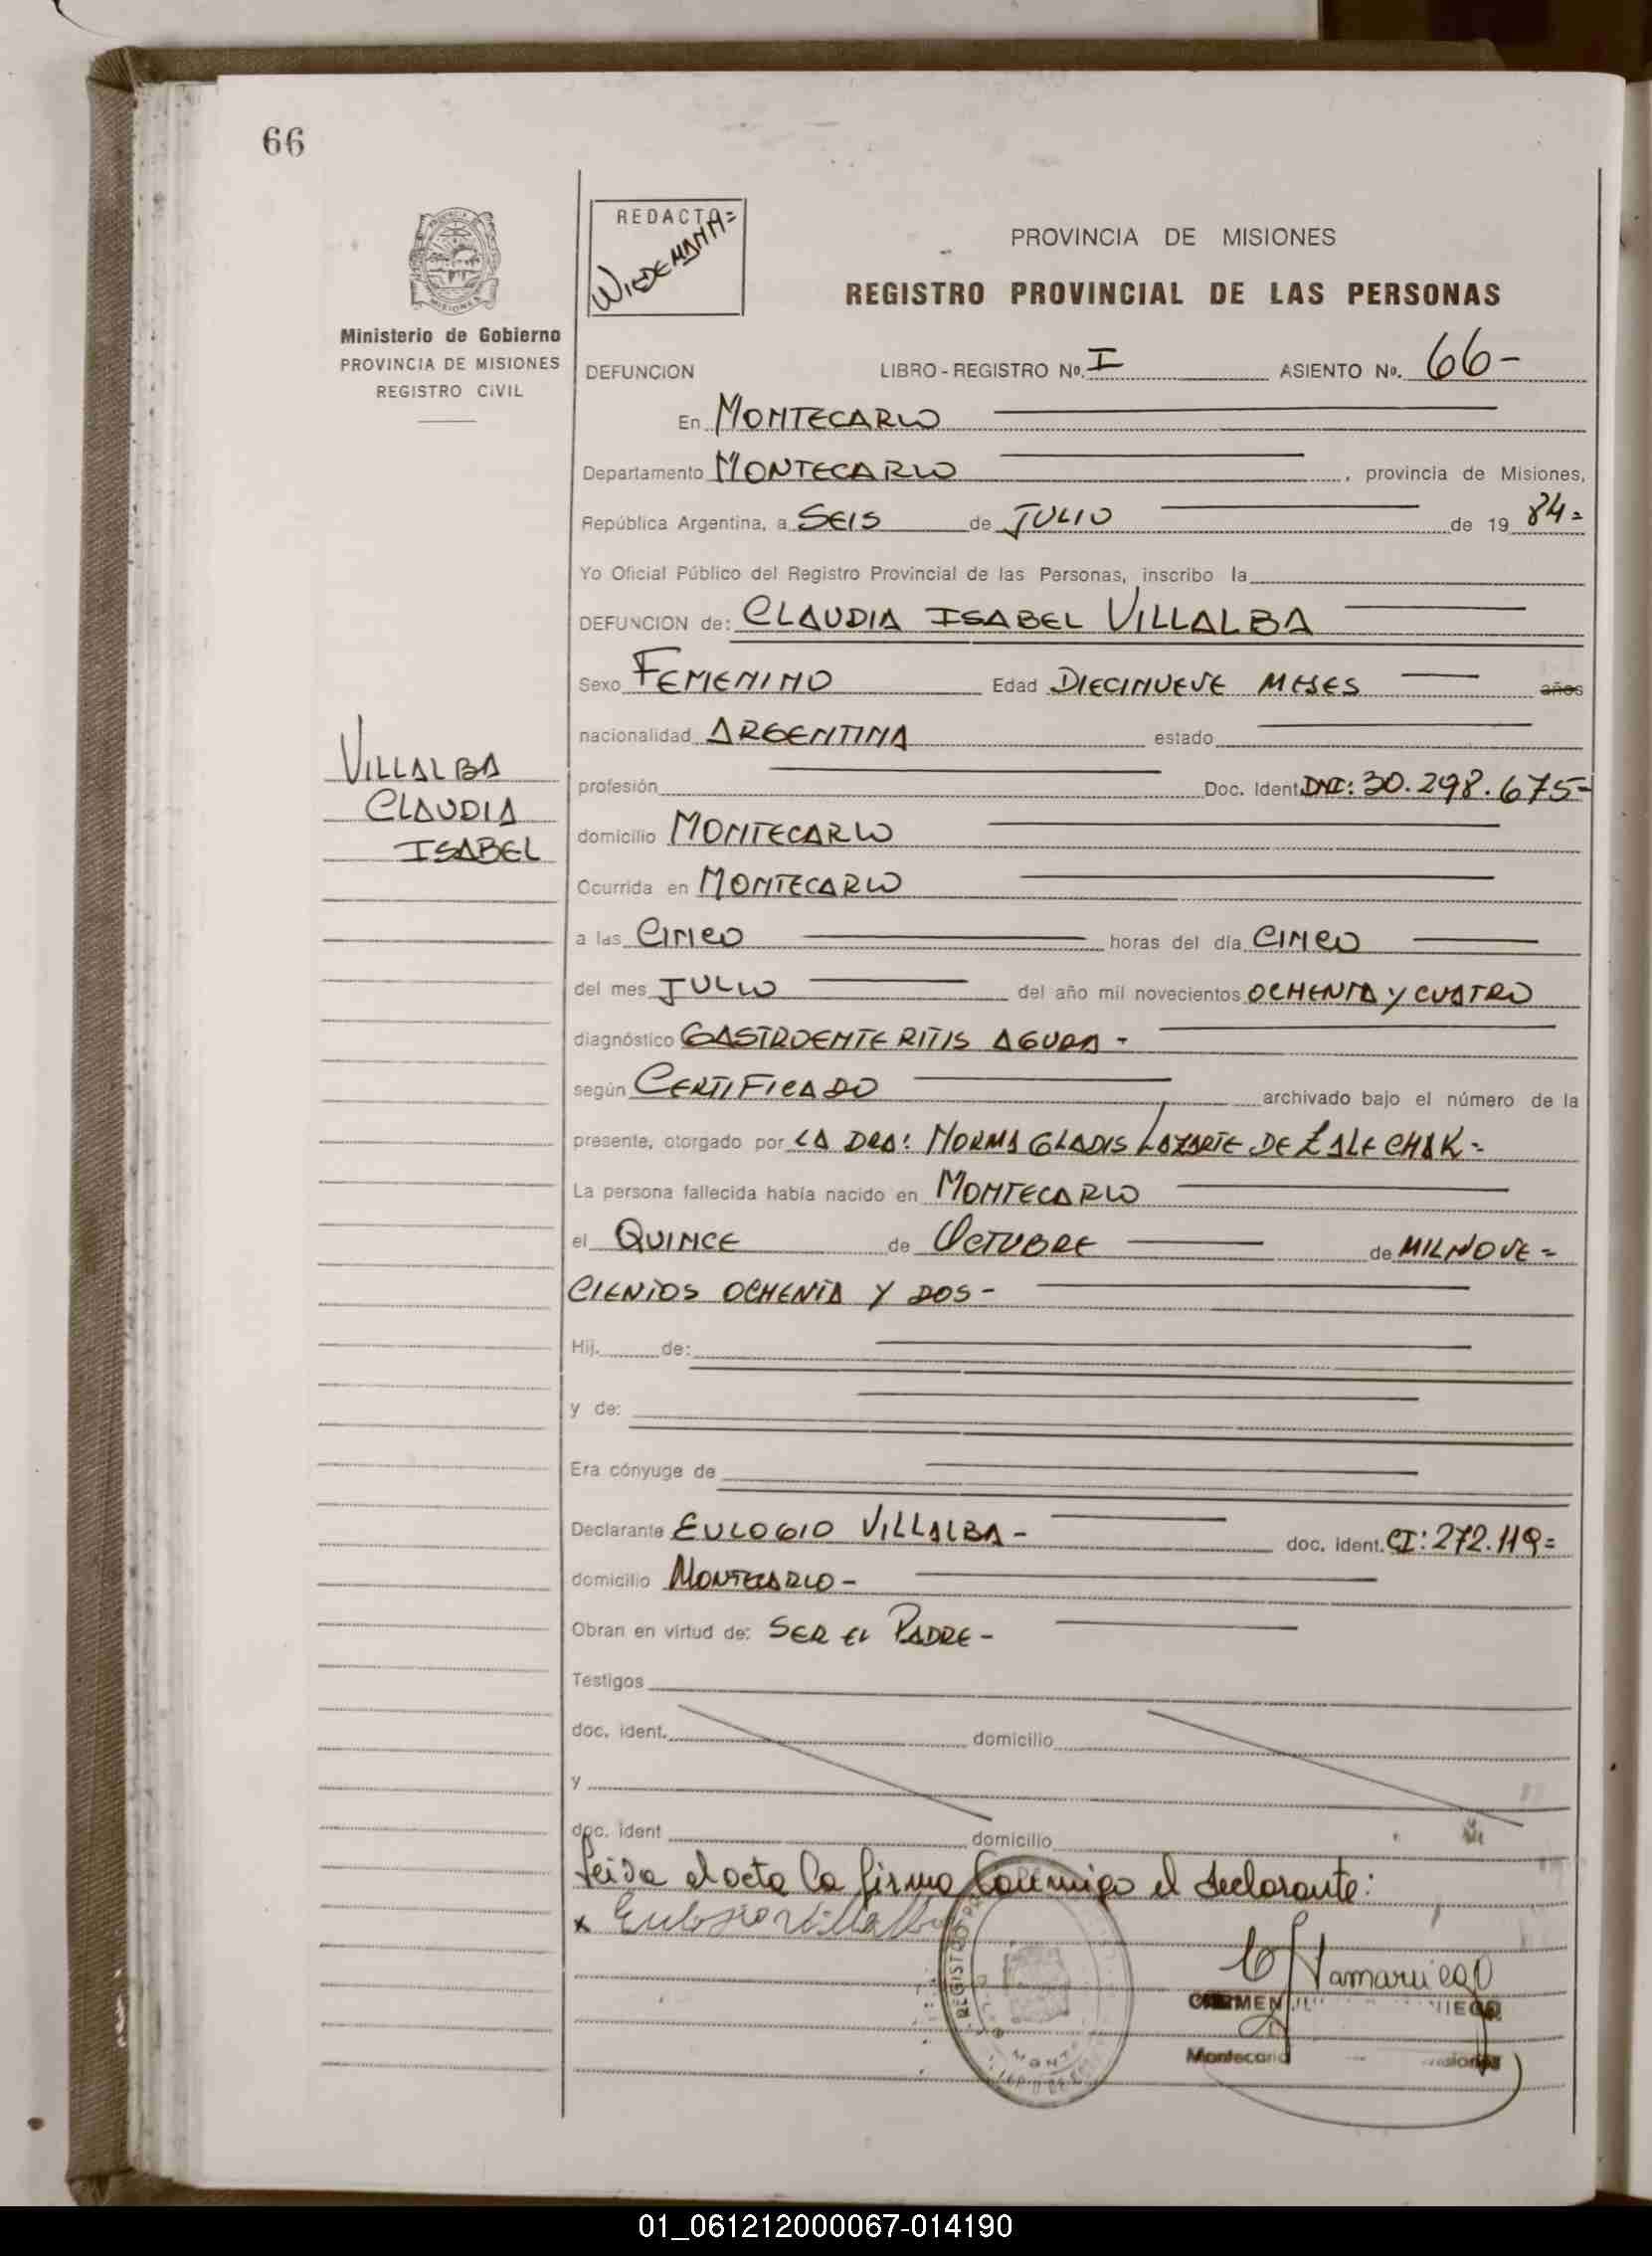 66
REDACTO=
WIEDEMANN=
PROVINCIA DE MISIONES
REGISTRO PROVINCIAL DE LAS PERSONAS
MISIONES
Ministerio de Gobierno
PROVINCIA DE MISIONES
REGISTRO CIVIL
DEFUNCION LIBRO - REGISTRO No. I ASIENTO No. 66-
En MONTECARLO
Departamento MONTECARLO, provincia de Misiones,
República Argentina, a SEIS de JULIO de 19 84=
Yo Oficial Público del Registro Provincial de las Personas, inscribo la
DEFUNCION de: CLAUDIA ISABEL VILLALBA
Sexo FEMENINO Edad DIECINUEVE MESES años
nacionalidad ARGENTINA estado
VILLALBA
CLAUDIA
ISABEL
profesión Doc. Ident. DNI: 30.298.675-
domicilio MONTECARLO
Ocurrida en MONTECARLO
a las CINCO horas del día CINCO
del mes JULIO del año mil novecientos OCHENTA Y CUATRO
diagnóstico GASTROENTERITIS AGUDA -
según CERTIFICADO archivado bajo el número de la
presente, otorgado por LA DRA: NORMA GLADIS LAZARTE DE ZALECHAK=
La persona fallecida había nacido en MONTECARLO
el QUINCE de OCTUBRE de MILNOVE=
CIENTOS OCHENTA Y DOS-
Hij. de:
y de:
Era cónyuge de
Declarante EULOGIO VILLALBA- doc. ident. CI: 272.119=
domicilio MONTECARLO-
Obran en virtud de: SER EL PADRE-
Testigos
doc. ident. domicilio
y
doc. ident domicilio
Leida el acta la firma conmigo el declarante:
x Eulogio Villalba
REGISTRO
CARMEN
Montecarlo
01_061212000067-014190